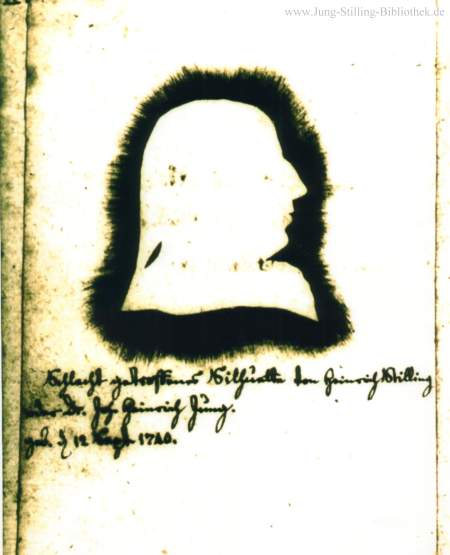 www.Jung-Stilling-Bibliothek.de
Schlecht getroffenes Silhuette von Heinrich Stilling
oder Dr. Joh Heinrich Jung.
geb. d 12 Sept 1740.